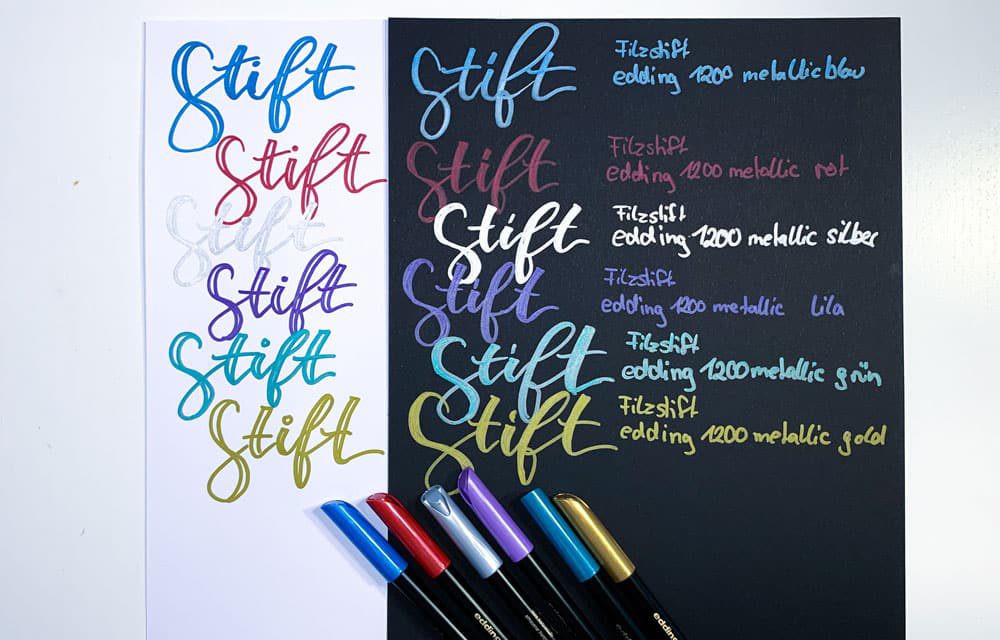 Stift
Stift
Stift
Stift
Stift
Stift
Stift
Filzstift
edding 1200 metallic blau
Stift
Filzstift
edding 1200 metallic rot
Stift
Filzstift
edding 1200 metallic silber
Stift
Filzstift
edding 1200 metallic lila
Stift
Filzstift
edding 1200 metallic grün
Stift
Filzstift
edding 1200 metallic gold
edding
edding